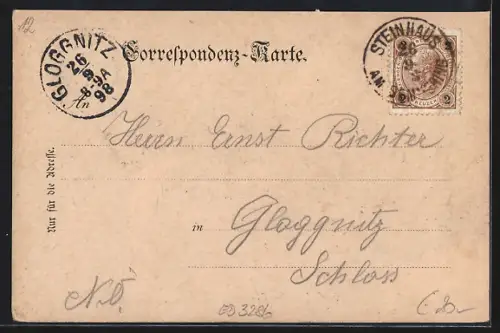 12
Correspondenz-Karte.
GLOGGNITZ
26
8-9A
98
STEINHAUS
26
AM SEMMERING
2
An
Herrn Ernst Richter
Nur für die Adresse.
in Gloggnitz
Schloss
N.Ö.